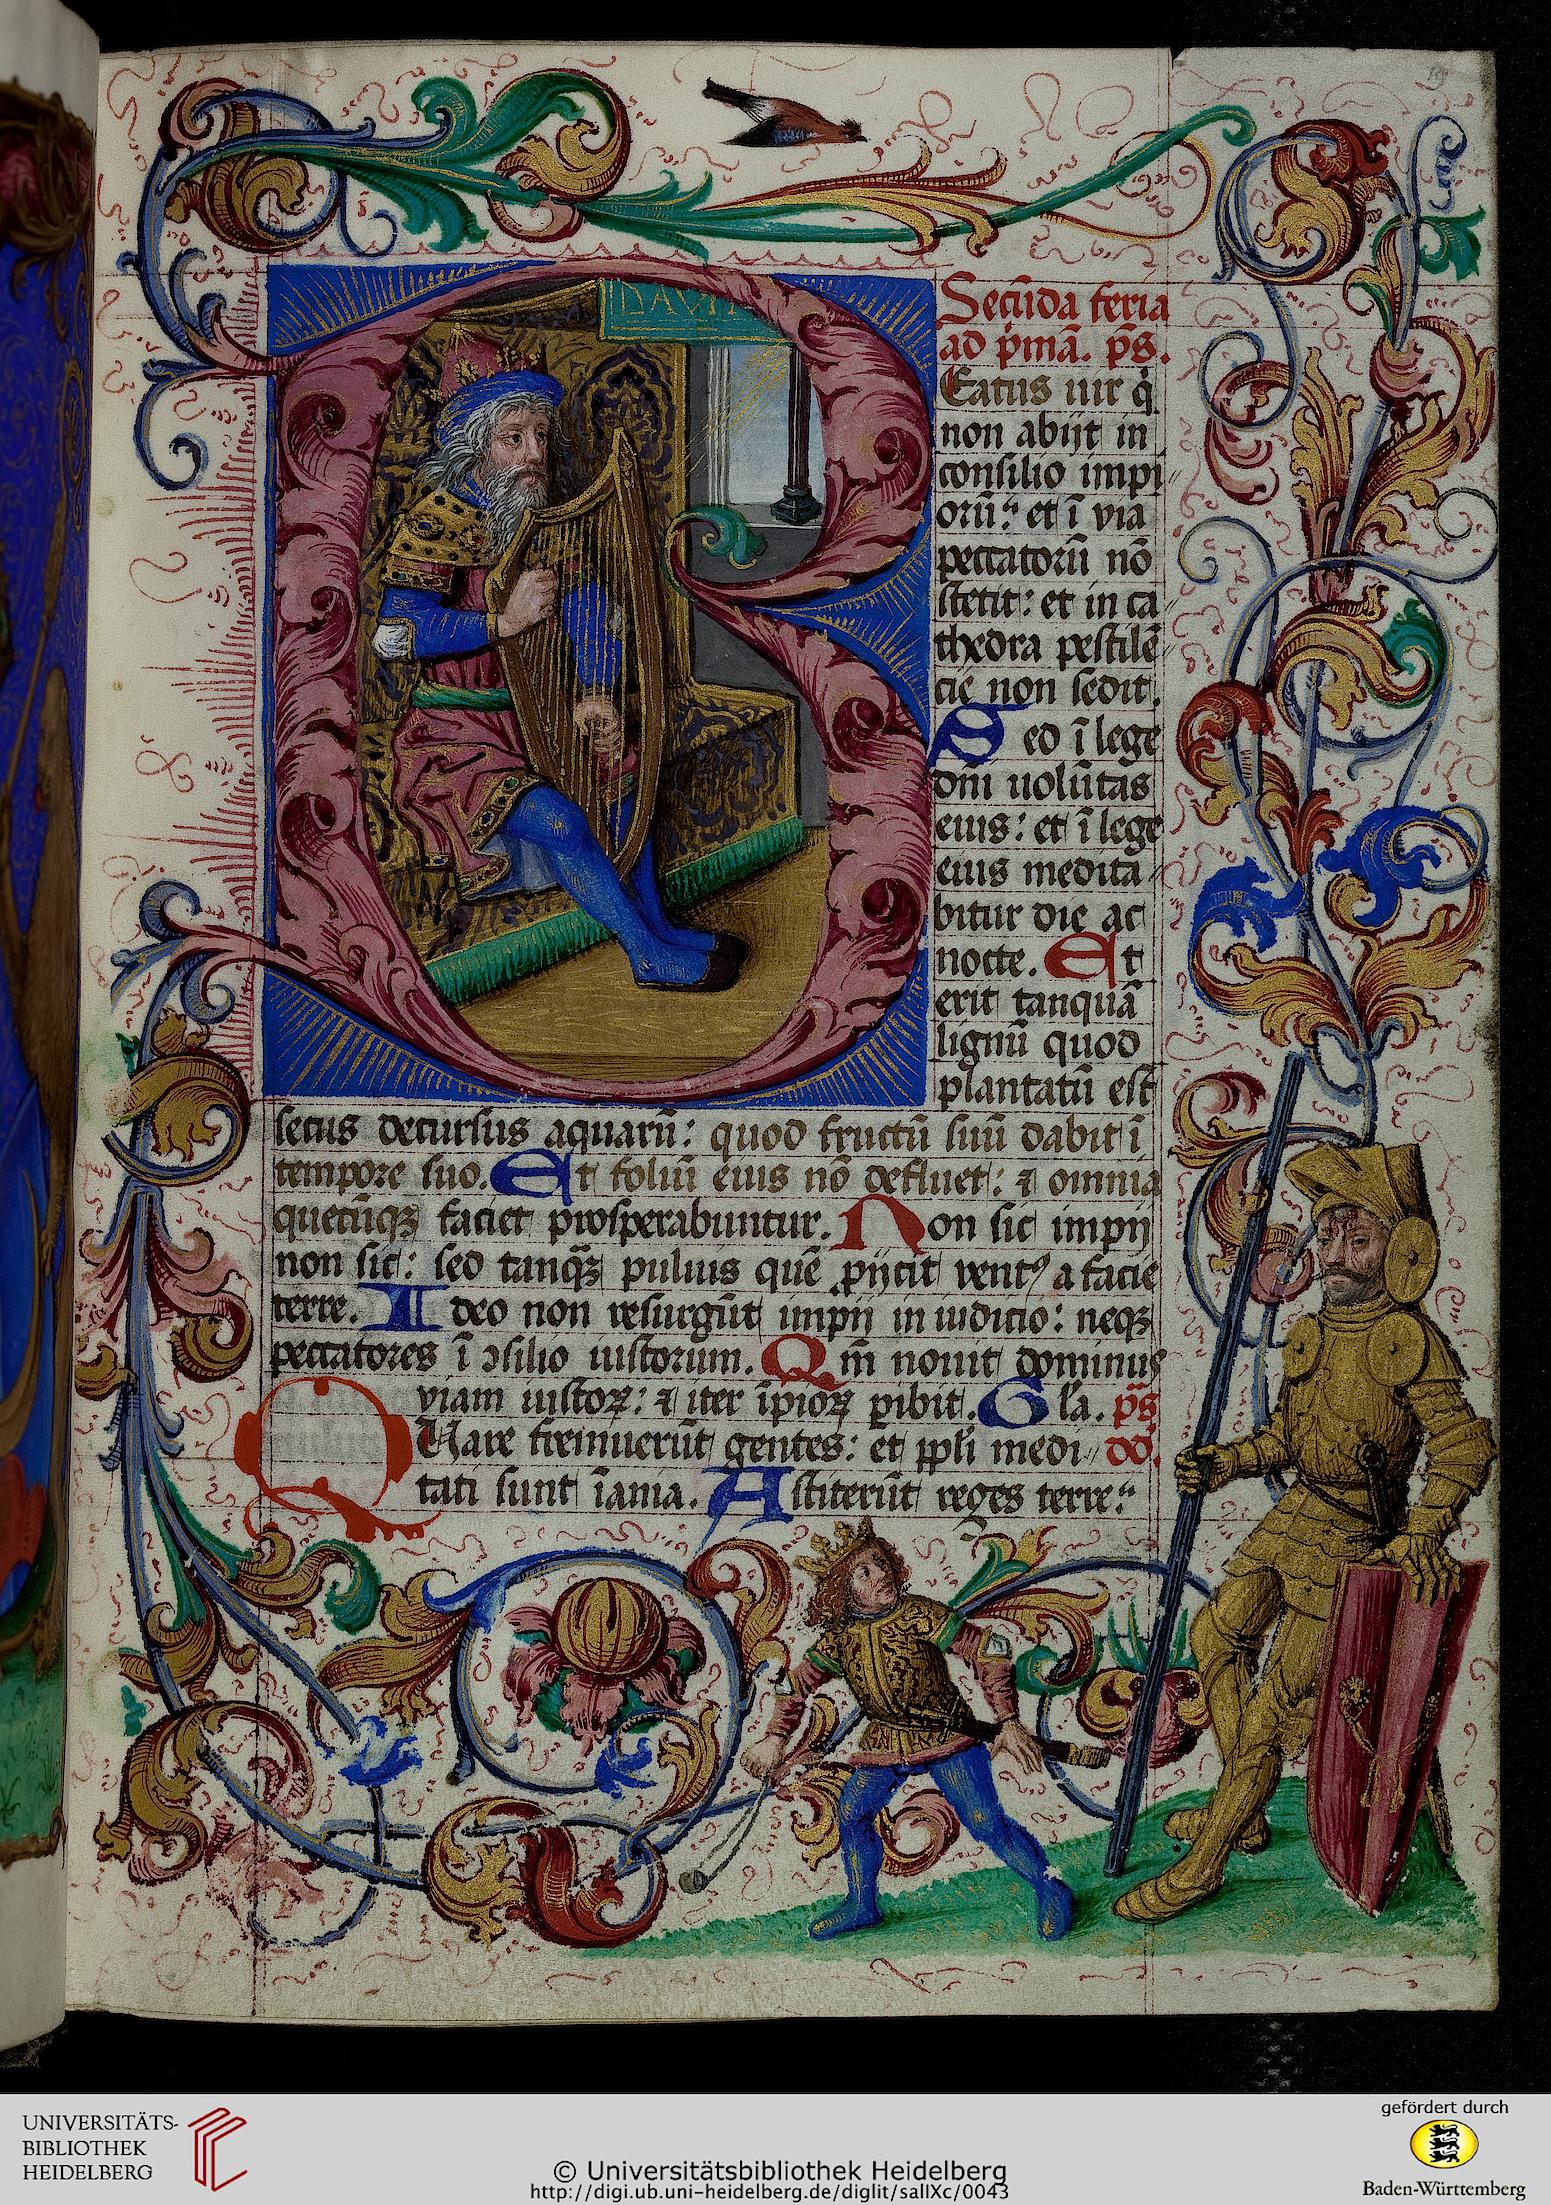 DAVI
Secūda feria
ad p̍mā. p̄s.
Eatus uir q̍
non abijt in
consilio impi
orū: et ī via
peccatorū nō
stetit: et in ca
thedra pestilē
cie non sedit.
Sed ī lege
dn̄i uolūtas
eius: et ī lege
eius medita
bitur die ac
nocte. Et
erit tanquā
lignū quod
plantatū est
secus decursus aquarū: quod fructū suū dabit ī
tempore suo. Et foliū eius nō defluet: ⁊ omnia
quecūqꝫ faciet prosperabuntur. Non sic impij
non sic: sed tanqꝫ puluis quē ꝓijcit ventꝰ a facie
terre. Ideo non resurgūt impij in iudicio: neqꝫ
peccatores ī ↄsilio iustorum. Qm̄ nouit dominus
viam iustoꝝ: ⁊ iter īpioꝝ ꝑibit. Gl̄a. p̄s
QUare fremuerūt gentes: et ppl̄i medi dd̄.
tati sunt īania. Astiterūt reges terre:
UNIVERSITÄTS-
BIBLIOTHEK
HEIDELBERG
© Universitätsbibliothek Heidelberg
http://digi.ub.uni-heidelberg.de/diglit/salIXc/0043
gefördert durch
Baden-Württemberg